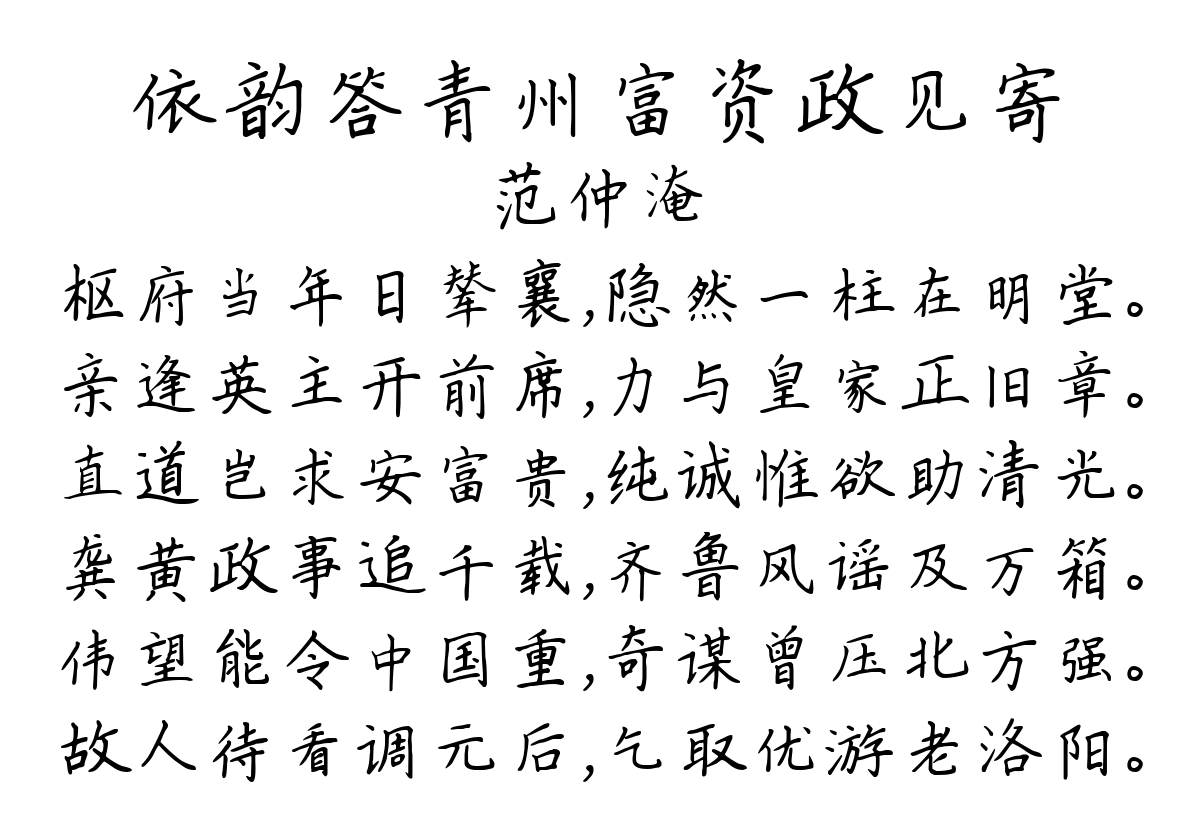 依韵答青州富资政见寄
范仲淹
枢府当年日辇襄,隐然一柱在明堂。
亲逢英主开前席,力与皇家正旧章。
直道岂求安富贵,纯诚惟欲助清光。
龚黄政事追千载,齐鲁风谣及万箱。
伟望能令中国重,奇谋曾压北方强。
故人待看调元后,乞取优游老洛阳。